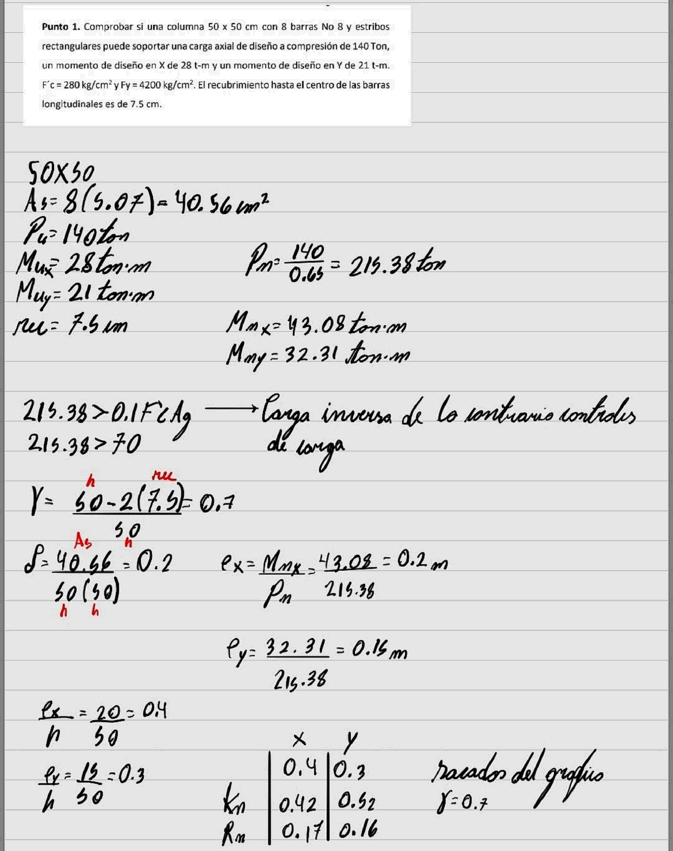 Punto 1. Comprobar si una columna 50 x 50 cm con 8 barras No 8 y estribos
rectangulares puede soportar una carga axial de diseño a compresión de 140 Ton,
un momento de diseño en X de 28 t-m y un momento de diseño en Y de 21 t-m.
F´c = 280 kg/cm² y Fy = 4200 kg/cm². El recubrimiento hasta el centro de las barras
longitudinales es de 7.5 cm.
50X50
As= 8(5.07)= 40.56 cm²
Pu= 140 ton
Mux= 28 ton·m
Muy= 21 ton·m
rec= 7.5 cm
Pn= 140/0.65 = 215.38 ton
Mnx= 43.08 ton·m
Mny= 32.31 ton·m
215.38 > 0.1 F'c Ag → Carga inversa de lo contrario controles
215.38 > 70 de carga
h rec
γ= 50-2(7.5)/50 = 0.7
h
As
ρ= 40.56/50(50) = 0.2
h h
ex= Mnx/Pn = 43.08/215.38 = 0.2 m
ey= 32.31/215.38 = 0.15 m
ex/h = 20/50 = 0.4
ey/h = 15/50 = 0.3
X Y
0.4 0.3
Kn 0.42 0.52
Rn 0.17 0.16
sacados del grafico
γ=0.7